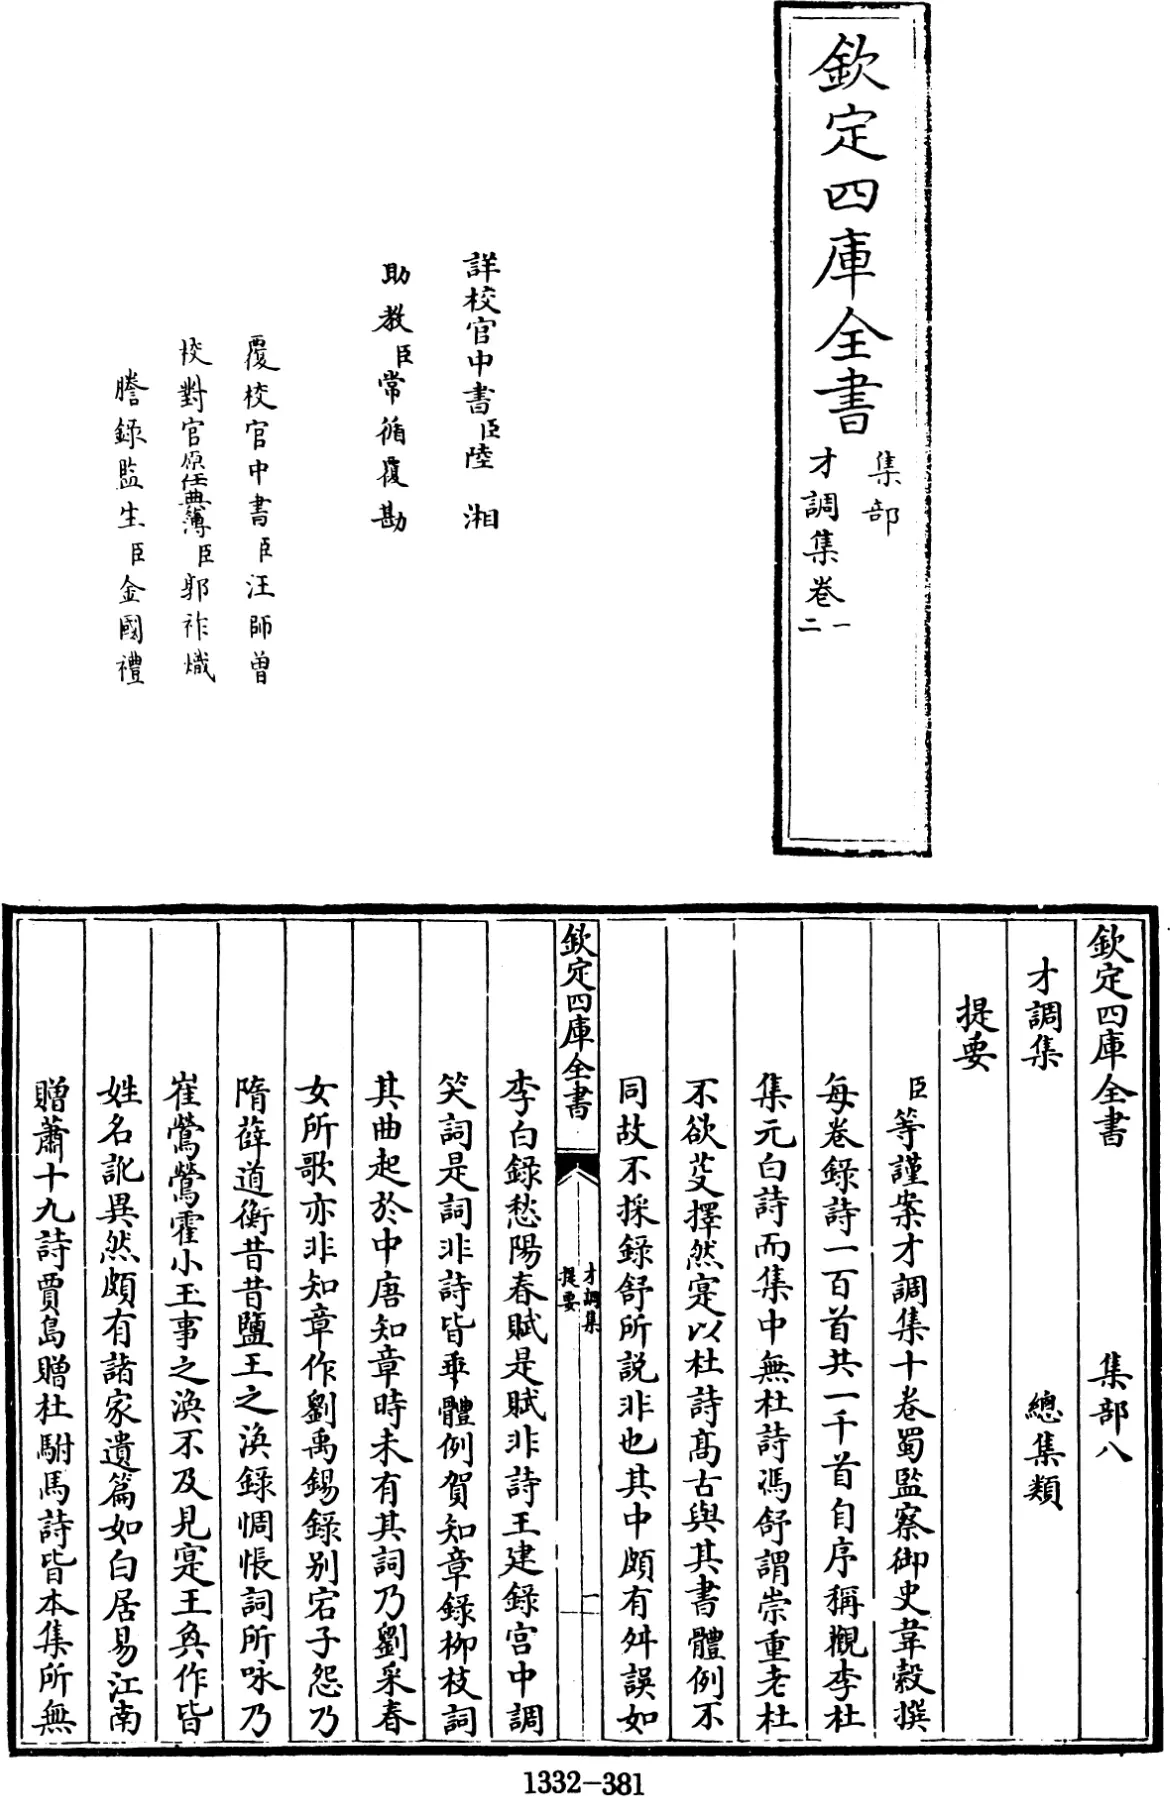 欽定四庫全書
集部
才調集卷一
二
詳校官中書臣陸湘
助教臣常循覆勘
覆校官中書臣汪師曾
校對官原任典簿臣郭祚熾
謄録監生臣金國禮
欽定四庫全書 集部八
才調集 總集類
提要
臣等謹案才調集十卷蜀監察御史韋縠撰
每卷録詩一百首共一千首自序稱觀李杜
集元白詩而集中無杜詩馮舒謂崇重老杜
不欲芟擇然寔以杜詩髙古與其書體例不
同故不採録舒所説非也其中頗有舛誤如
欽定四庫全書
才調集
提要
一
李白録愁陽春賦是賦非詩王建録宫中調
笑詞是詞非詩皆乖體例賀知章録栁枝詞
其曲起於中唐知章時未有其詞乃劉采春
女所歌亦非知章作劉禹錫録别宕子怨乃
隋薛道衡昔昔鹽王之渙録惆悵詞所咏乃
崔鶯鶯霍小玉事之渙不及見寔王奐作皆
姓名訛異然頗有諸家遺篇如白居易江南
贈蕭十九詩賈島贈杜駙馬詩皆本集所無
1332-381